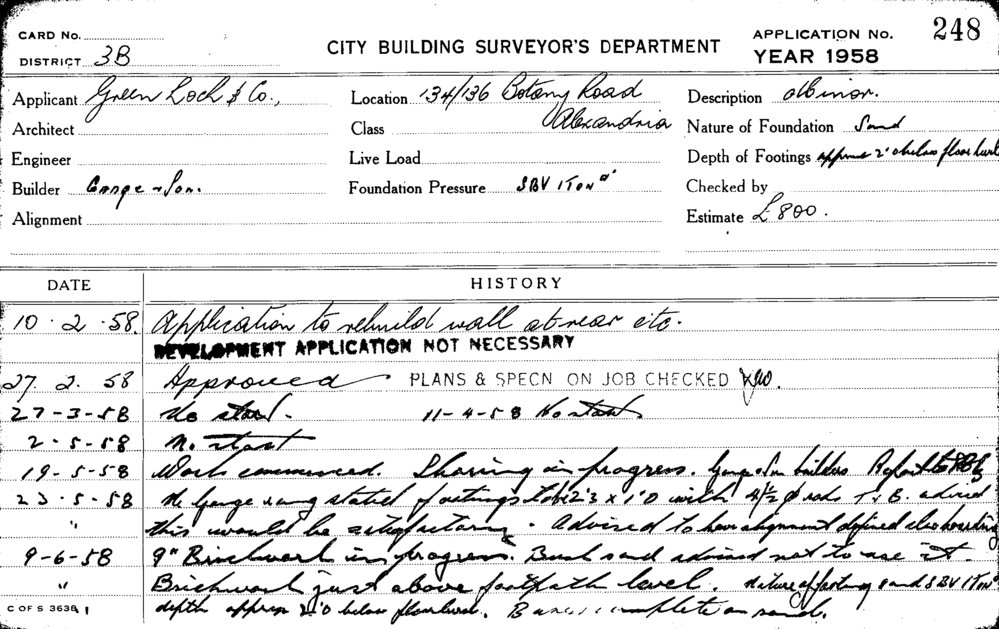 CARD No.
DISTRICT 3B
CITY BUILDING SURVEYOR'S DEPARTMENT
APPLICATION No. 248
YEAR 1958
Applicant Green Loch & Co.,
Location 134/136 Botany Road Alexandria
Description Minor.
Architect
Class
Nature of Foundation Sand
Engineer
Live Load
Depth of Footings approx 2'0 below floor level
Builder & Son.
Foundation Pressure SBV 1 Ton
Checked by
Alignment
Estimate £800.
DATE HISTORY
10.2.58. Application to rebuild wall at rear etc.
DEVELOPMENT APPLICATION NOT NECESSARY
27.2.58 Approved PLANS & SPECN ON JOB CHECKED
27-3-58 No start. 11-4-58 No start
2-5-58 No start
19-5-58 Work commenced. Shoring in progress. & Son builders
23-5-58 rang stated footings to be 2'3 x 1'0 with 4/½ rods advised
" this would be satisfactory. Advised to have alignment defined also hoarding
9-6-58 9" Brickwork in progress. Bush sand advised not to use it.
" Brickwork just above footpath level. Nature of footing sand SBV 1 Ton
depth approx 2'0 below floor level. complete on sand.
C OF S 3638